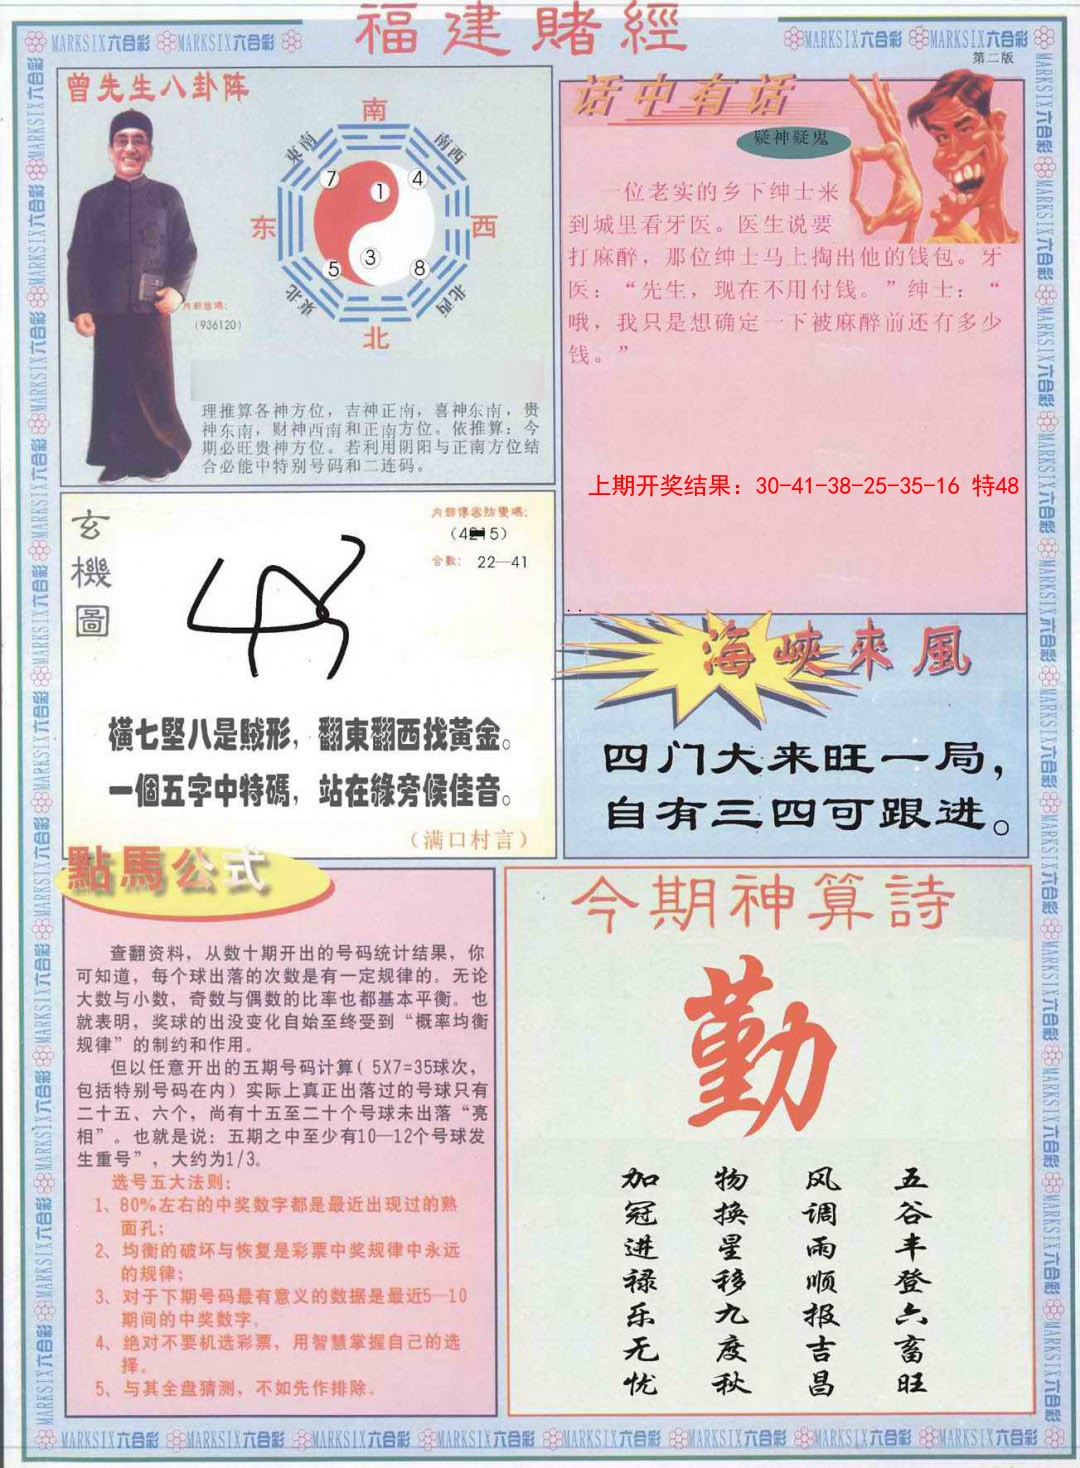 福建賭經
MARKSIX六合彩 MARKSIX六合彩
MARKSIX六合彩 MARKSIX六合彩
第二版
曾先生八卦阵
南
東南
南西
7
1
4
东
西
5
3
8
東北
北西
北
内部密碼:
(936120)
理推算各神方位，吉神正南，喜神东南，贵
神东南，财神西南和正南方位。依推算：今
期必旺贵神方位。若利用阴阳与正南方位结
合必能中特别号码和二连码。
话中有话
疑神疑鬼
一位老实的乡下绅士来
到城里看牙医。医生说要
打麻醉，那位绅士马上掏出他的钱包。牙
医：“先生，现在不用付钱。”绅士：“
哦，我只是想确定一下被麻醉前还有多少
钱。”
上期开奖结果：30-41-38-25-35-16 特48
玄機圖
合數： 22—41
橫七堅八是賊形，翻東翻西找黃金。
一個五字中特碼，站在綠旁候佳音。
（满口村言）
海峽來風
四门大来旺一局，
自有三四可跟进。
點馬公式
查翻资料，从数十期开出的号码统计结果，你
可知道，每个球出落的次数是有一定规律的。无论
大数与小数，奇数与偶数的比率也都基本平衡。也
就表明，奖球的出没变化自始至终受到“概率均衡
规律”的制约和作用。
但以任意开出的五期号码计算( 5X7=35球次，
包括特别号码在内）实际上真正出落过的号球只有
二十五、六个，尚有十五至二十个号球未出落“亮
相”。也就是说：五期之中至少有10—12个号球发
生重号”，大约为1/3。
选号五大法则：
1、80%左右的中奖数字都是最近出现过的熟
面孔；
2、均衡的破坏与恢复是彩票中奖规律中永远
的规律；
3、对于下期号码最有意义的数据是最近5—10
期间的中奖数字。
4、绝对不要机选彩票，用智慧掌握自己的选
择。
5、与其全盘猜测，不如先作排除。
今期神算詩
勤
五谷丰登六畜旺
风调雨顺报吉昌
物换星移九度秋
加冠进禄乐无忧
MARKSIX六合彩 MARKSIX六合彩 MARKSIX六合彩 MARKSIX六合彩 MARKSIX六合彩 MARKSIX六合彩 MARKSIX六合彩 MARKSIX六合彩